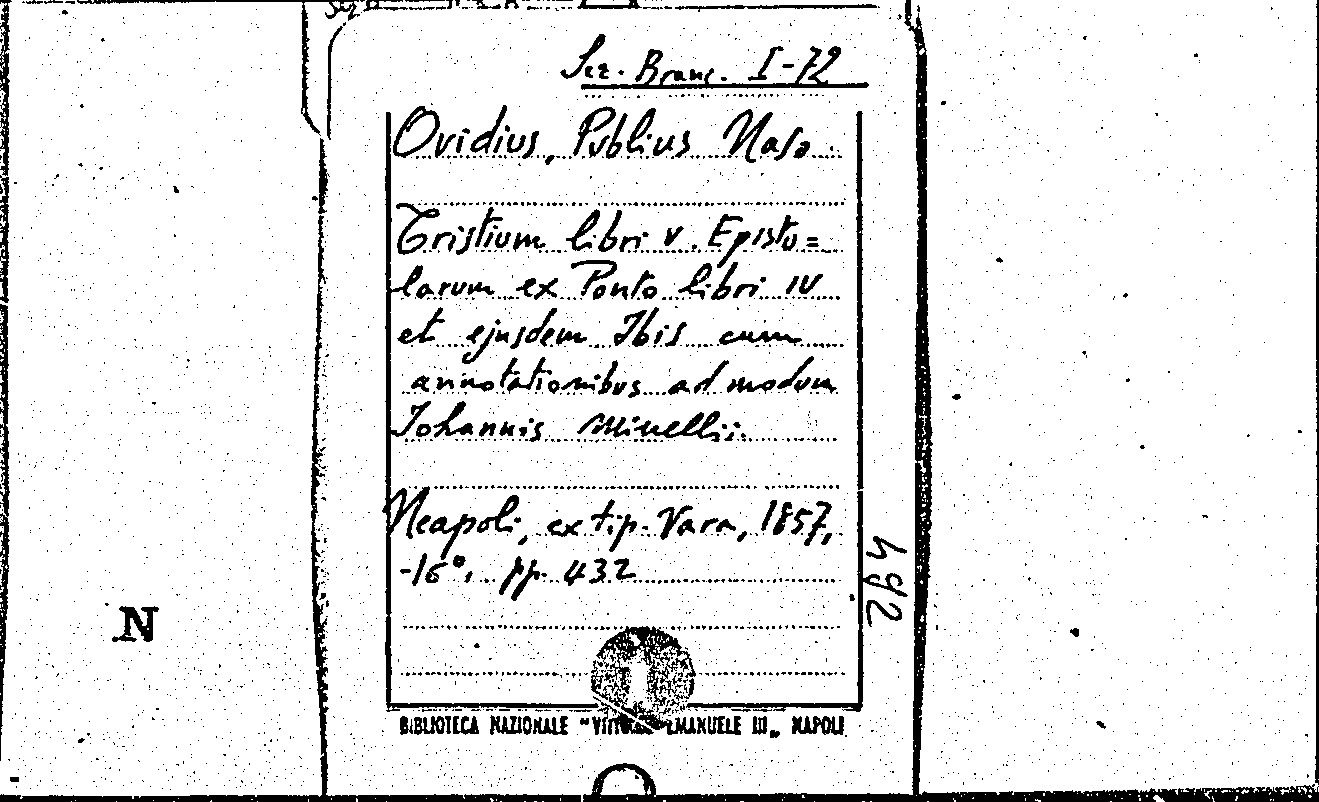 Sez. Branc. I-72
Ovidius, Publius Naso.
Tristium libri V. Episto=
larum ex Ponto libri IV
et ejusdem Ibis cum
annotationibus ad modum
Johannis Minellii.
Neapoli, ex tip. Vara, 1857,
-16°, pp. 432
492
N
BIBLIOTECA NAZIONALE "VITTORIO EMANUELE III„ NAPOLI